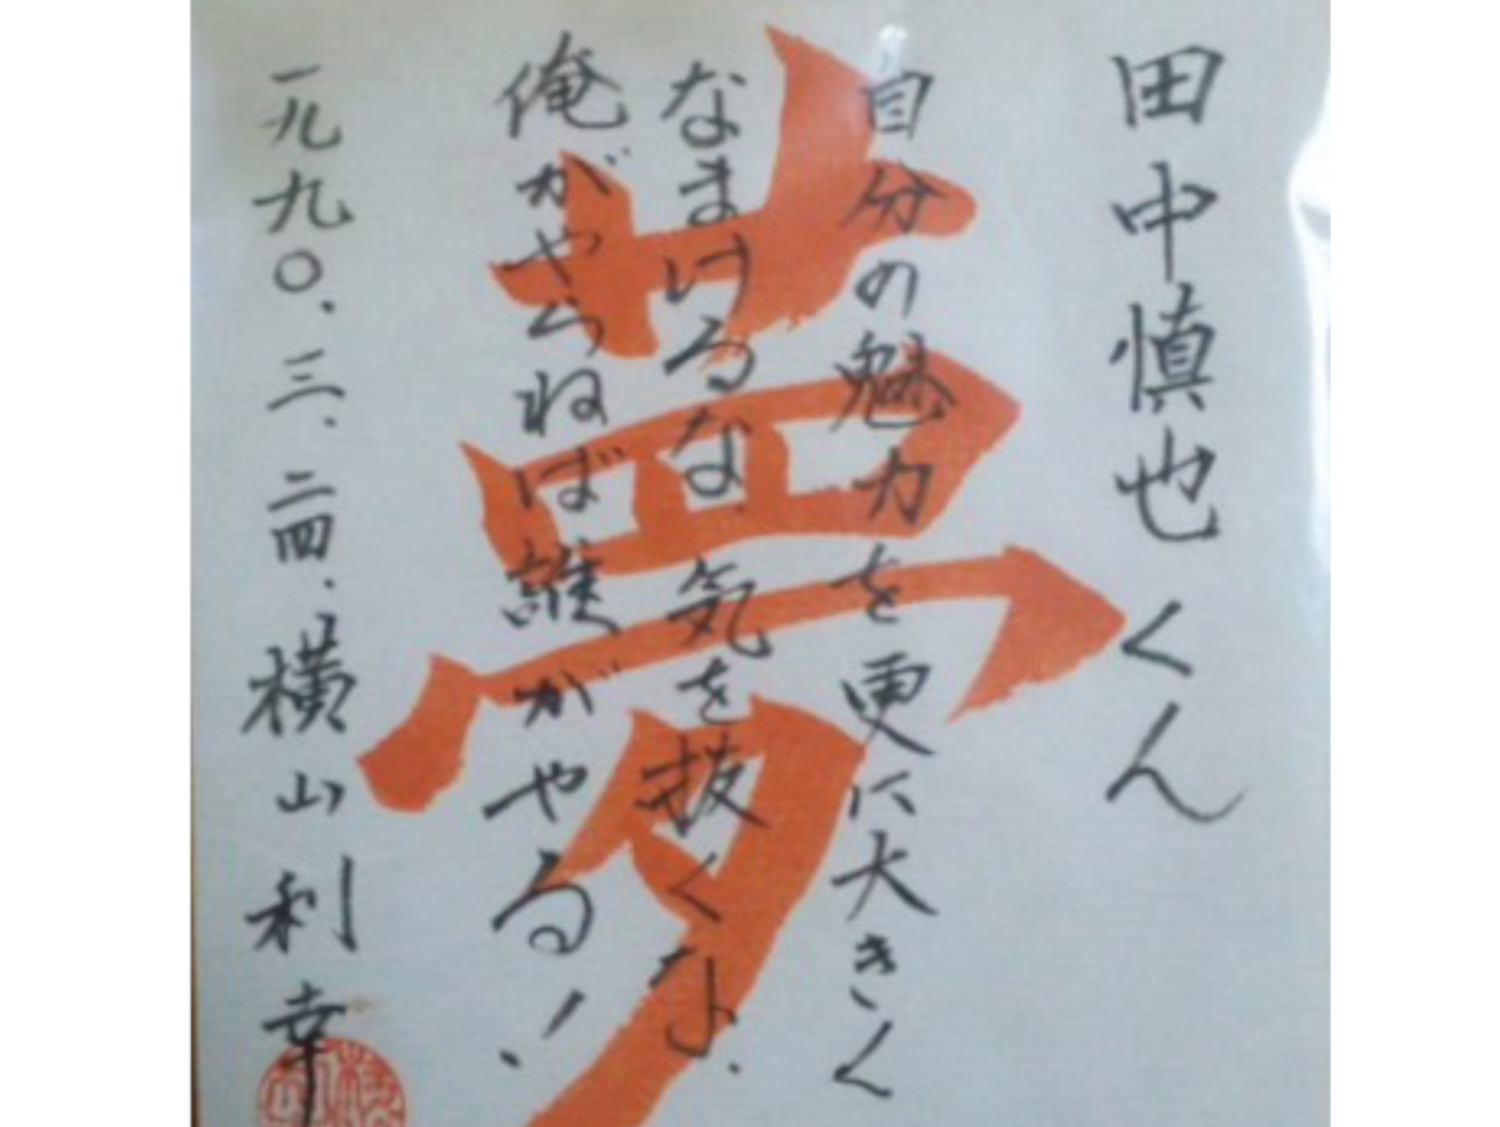 田中慎也くん
自分の魅力を更に大きく
なまけるな.気を抜くな.
俺がやらねば誰がやる!
一九九〇.三.二四.横山利幸
夢